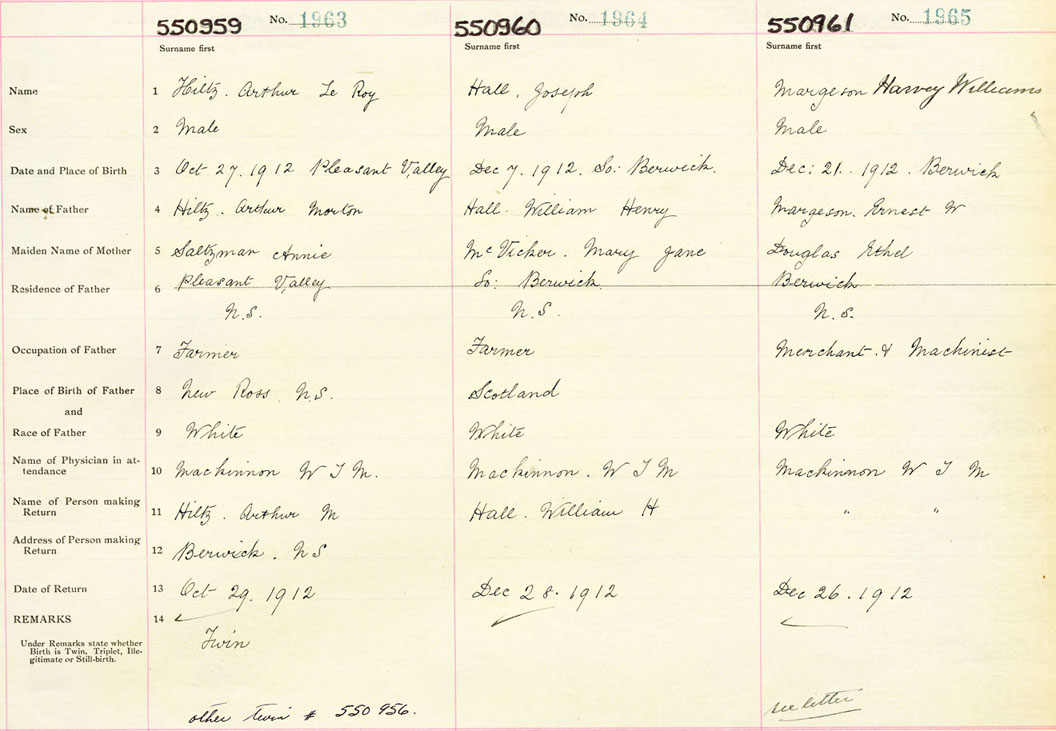 550959 No. 1963 550960 No. 1964 550961 No. 1965
Surname first Surname first Surname first
Name 1 Hiltz. Arthur Le Roy Hall, Joseph Margeson Harvey Williams
Sex 2 Male Male Male
Date and Place of Birth 3 Oct 27. 1912 Pleasant Valley Dec 7. 1912. So: Berwick. Dec: 21. 1912. Berwick
Name of Father 4 Hiltz. Arthur Morton Hall. William Henry Margeson. Ernest W
Maiden Name of Mother 5 Saltzman Annie McVicker. Mary Jane Douglas Ethel
Residence of Father 6 Pleasant Valley So: Berwick. Berwick
N.S. N.S. N.S.
Occupation of Father 7 Farmer Farmer Merchant & Machinist
Place of Birth of Father 8 New Ross N.S. Scotland
and
Race of Father 9 White White White
Name of Physician in at-
tendance 10 Mackinnon W J M. Mackinnon. W J M Mackinnon W J M
Name of Person making
Return 11 Hiltz. Arthur M Hall. William H " "
Address of Person making
Return 12 Berwick. NS
Date of Return 13 Oct 29. 1912 Dec 28. 1912 Dec 26. 1912
REMARKS 14
Under Remarks state whether
Birth is Twin, Triplet, Ille-
gitimate or Still-birth.
Twin
other twin # 550956.
see letter